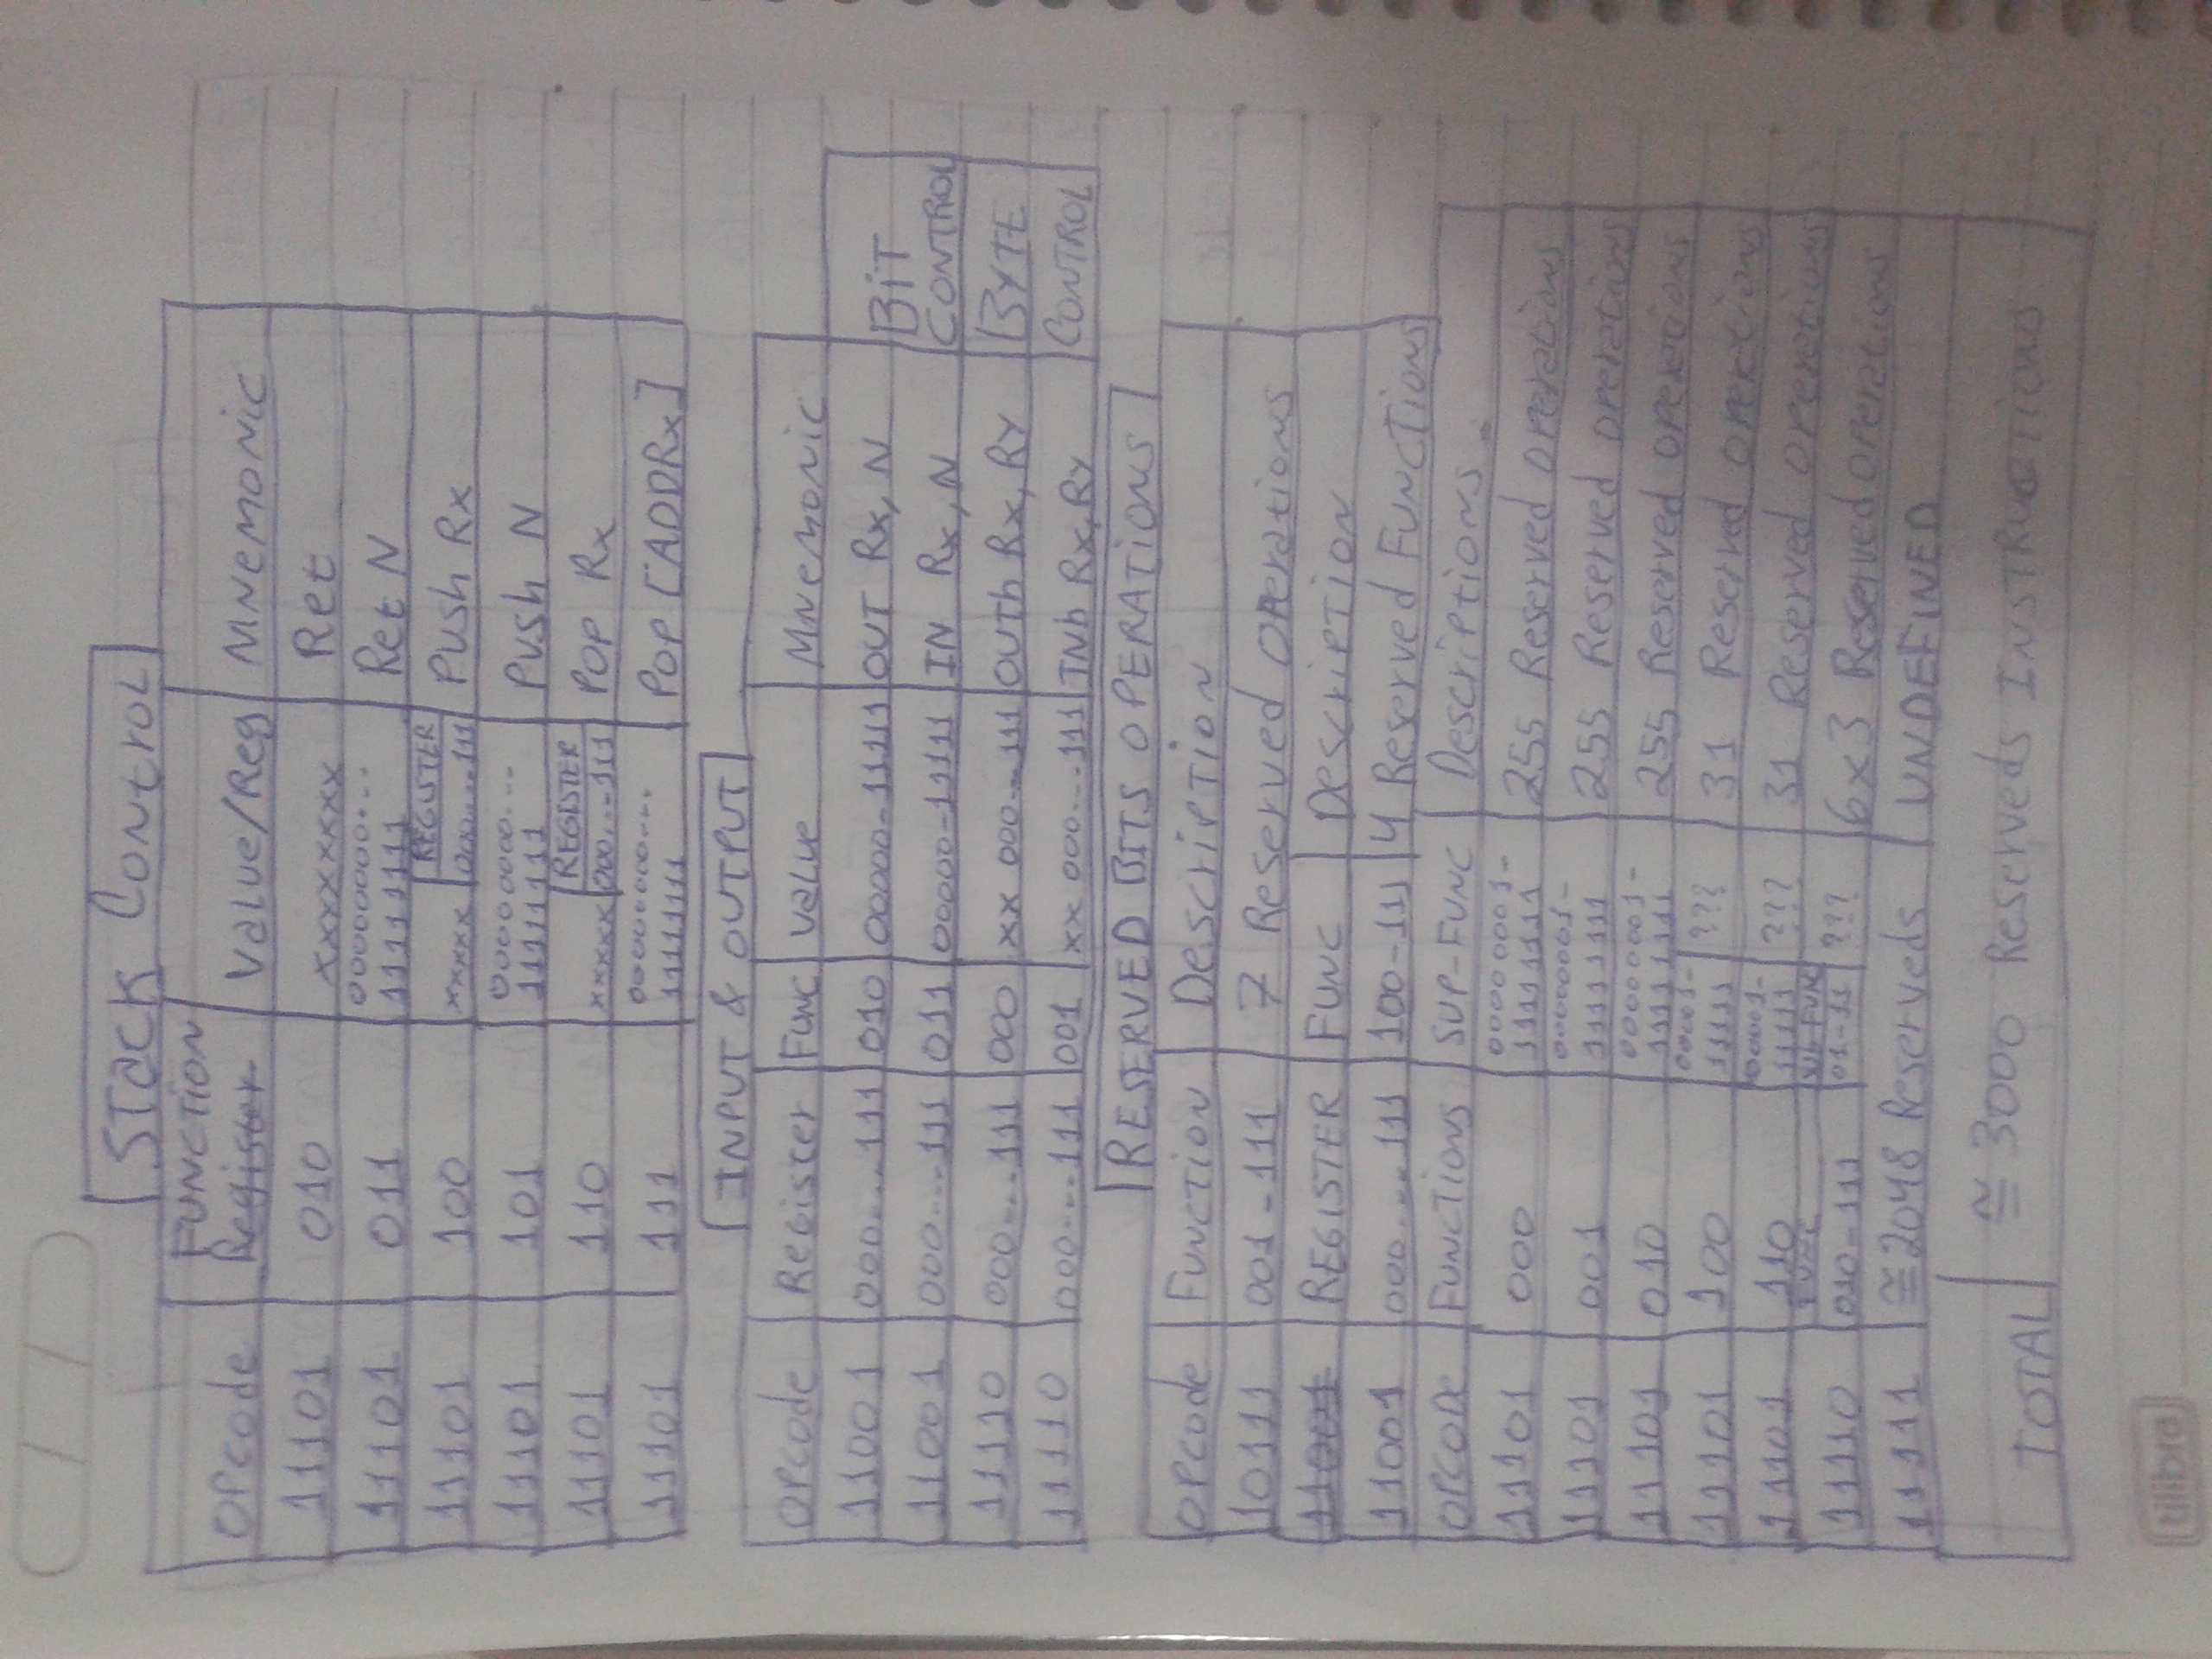 Stack Control
Opcode FUNCTION Register Value/Reg Mnemonic
11101 010 xxxxxxxx Ret
11101 011 00000000... 11111111 Ret N
11101 100 xxxxx REGISTER 000....111 Push Rx
11101 101 00000000... 11111111 Push N
11101 110 xxxxx REGISTER 000....111 POP Rx
11101 111 00000000... 11111111 POP [ADDRx]
INPUT & OUTPUT
Opcode Register Func Value Mnemonic
11001 000....111 010 00000-11111 OUT Rx, N BIT
11001 000....111 011 00000-11111 IN Rx, N CONTROL
11110 000....111 000 xx 000...111 OUTb Rx, RY BYTE
11110 000....111 001 xx 000...111 INb Rx, RY CONTROL
RESERVED BITS OPERATIONS
Opcode Function Description
10111 001-111 7 Reserved Operations
11001 REGISTER FUNC Description
11001 000....111 100-111 4 Reserved Functions
OPCODE FUNCTIONS SUP-FUNC Descriptions
11101 000 00000001- 11111111 255 Reserved operations
11101 001 00000001- 11111111 255 Reserved operations
11101 010 00000001- 11111111 255 Reserved operations
11101 100 00001- 11111 ??? 31 Reserved operations
11101 110 00001- 11111 ??? 31 Reserved operations
FUNC SUB-FUNC
11110 010-111 01-11 ??? 6x3 Reserved operations
11111 ≅2048 Reserveds UNDEFINED
TOTAL ≅ 3000 Reserveds INSTRUCTIONS
tilibra